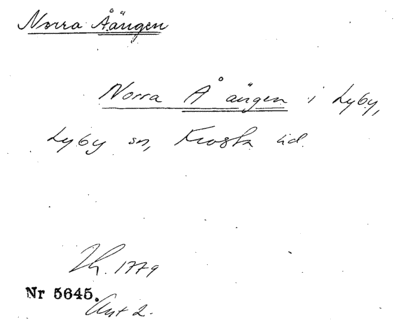 Norra Åängen
Norra Å ängen i Lyby,
Lyby sn, Frosta hd.
1779
Nr 5645.
Akt 2.